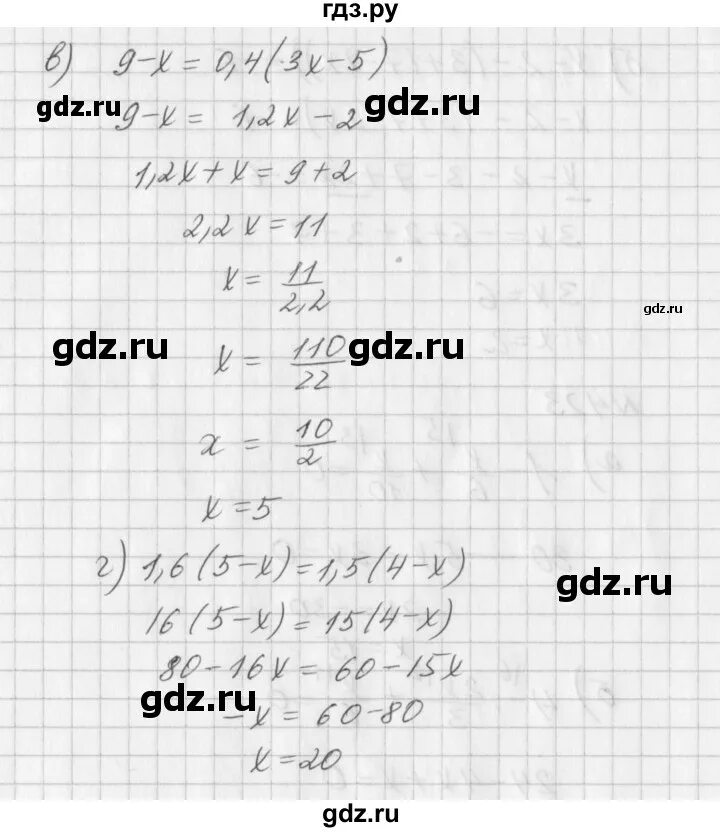 гдз.ру
в) 9-x = 0,4(3x-5)
gdz.ru
gdz.ru
9-x = 1,2x-2
1,2x+x = 9+2
2,2x = 11
x = 11/2,2
gdz.ru
gdz.ru
gdz.ru
x = 110/22
x = 10/2
x = 5
г) 1,6(5-x) = 1,5(4-x)
gdz.ru
16(5-x) = 15(4-x)
80-16x = 60-15x
gdz.ru
-x = 60-80
x = 20
gdz.ru